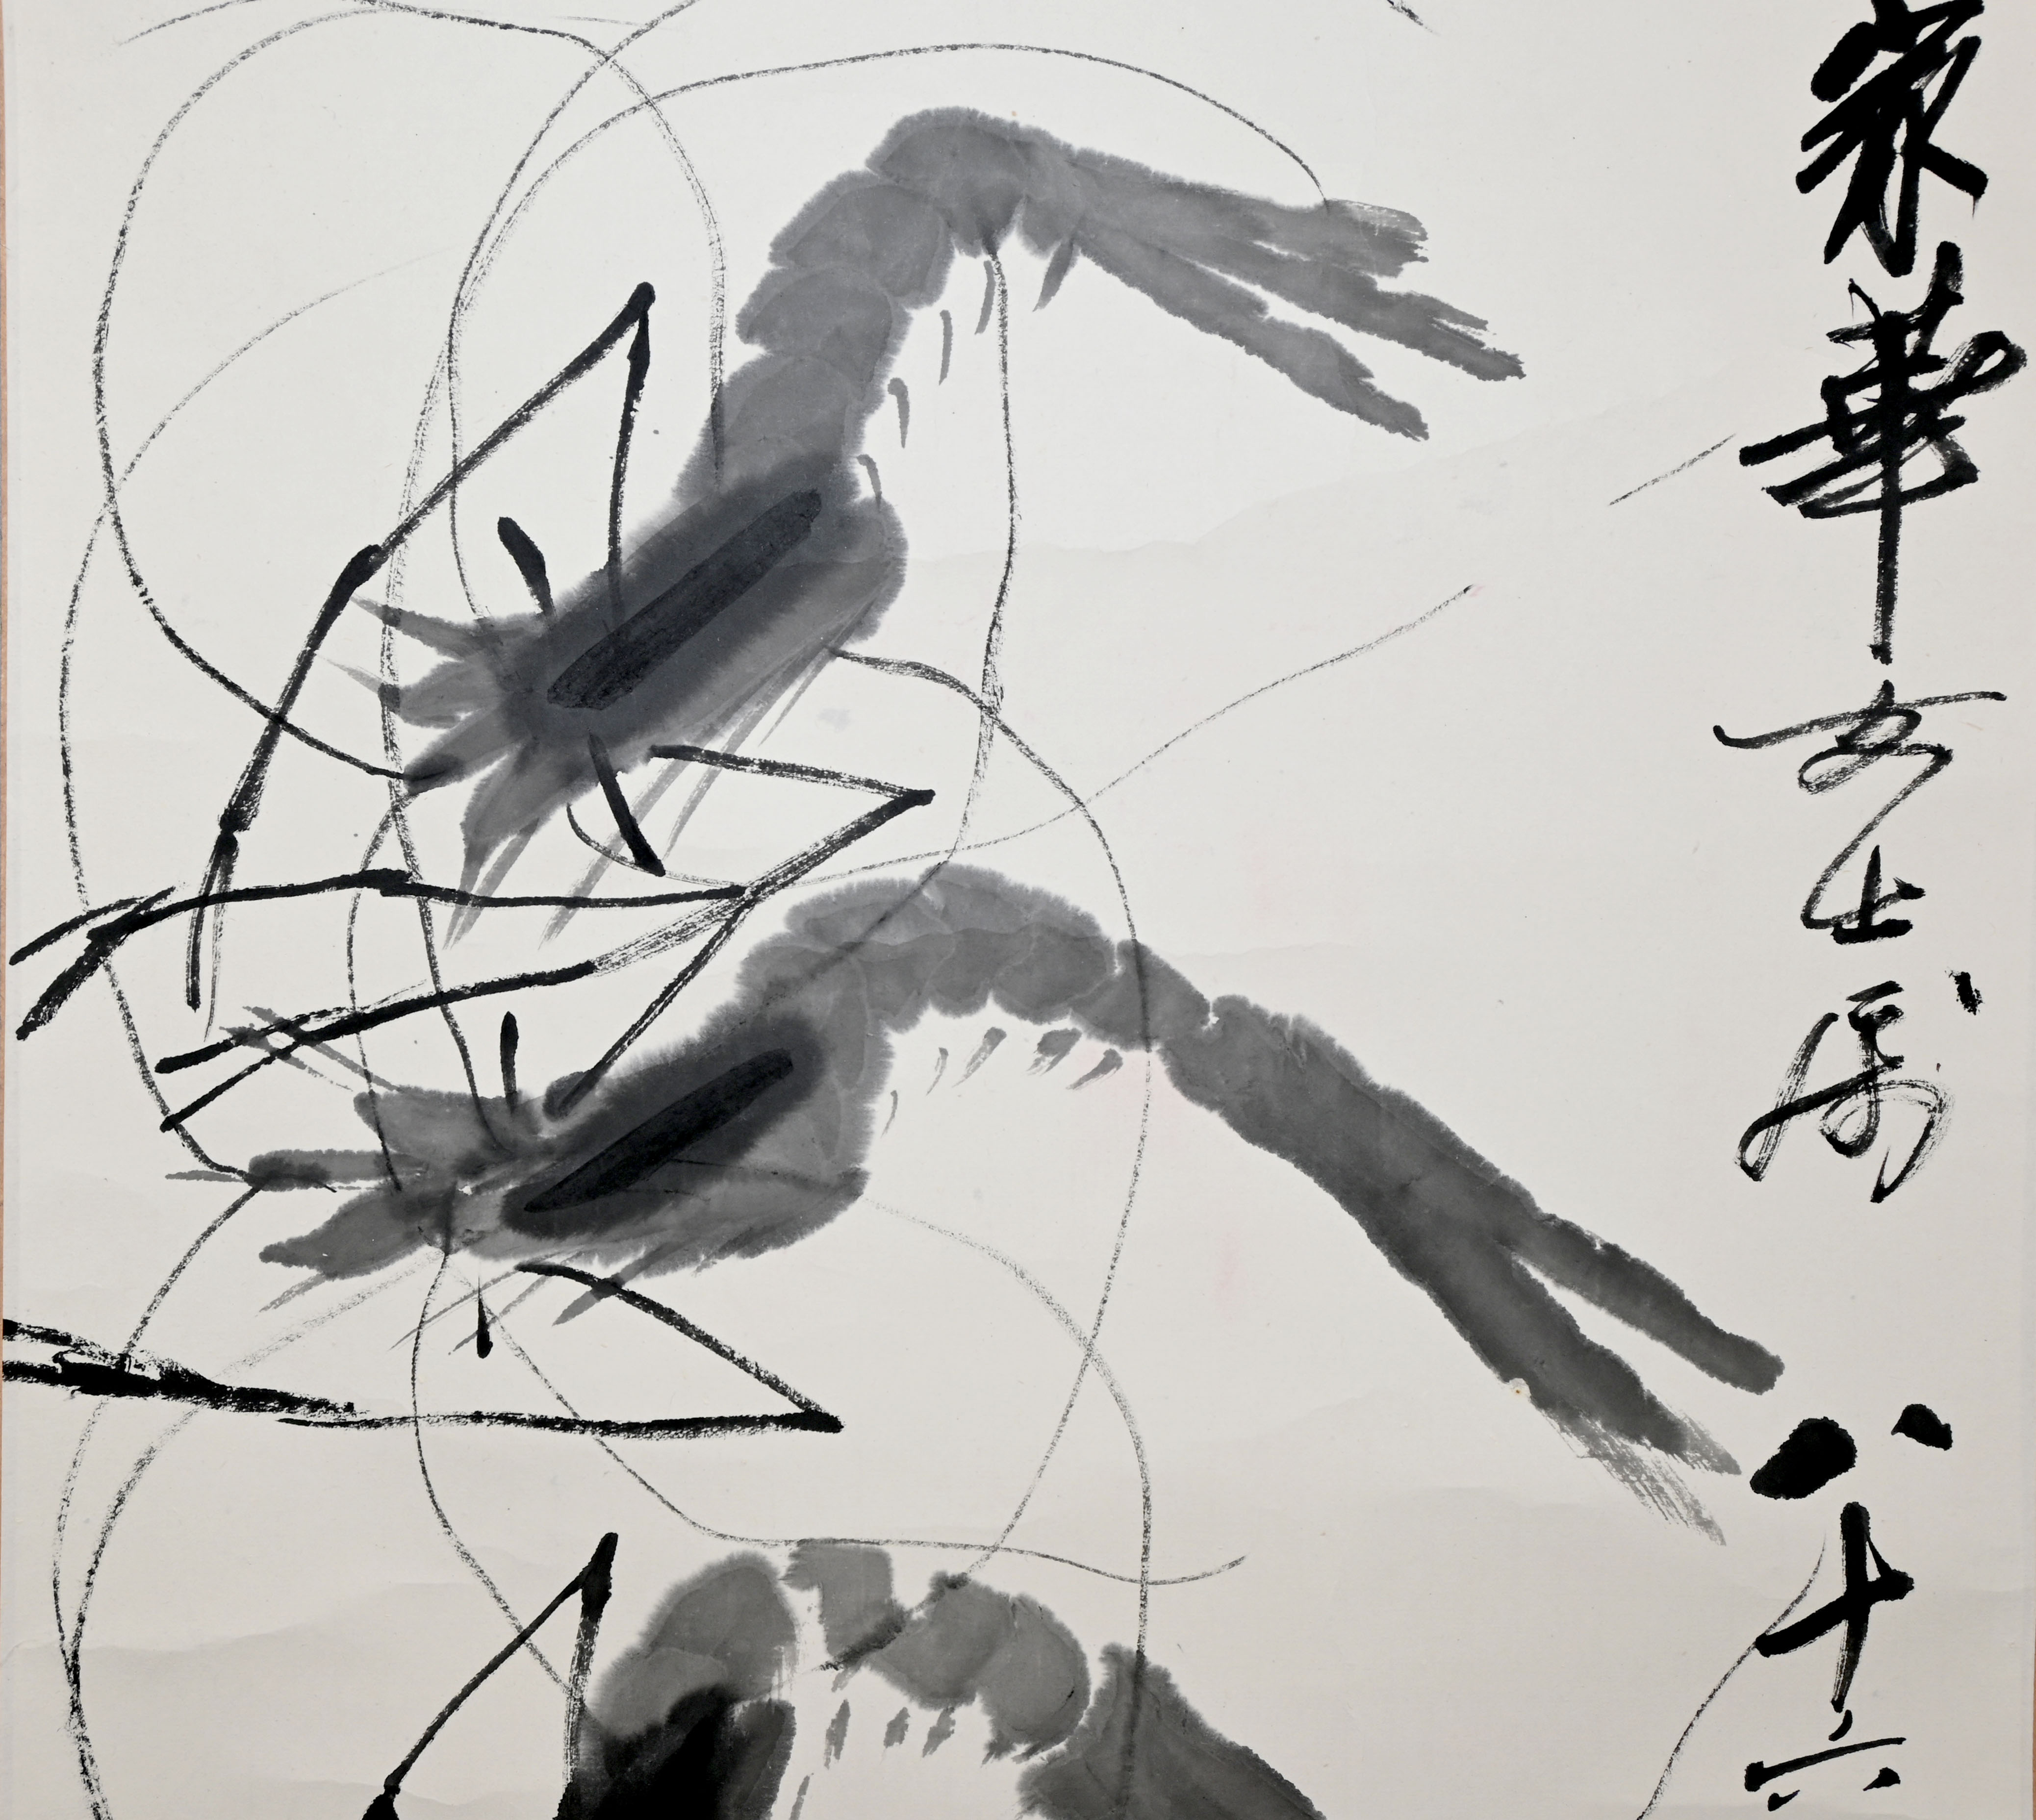 家華女士屬 八十六